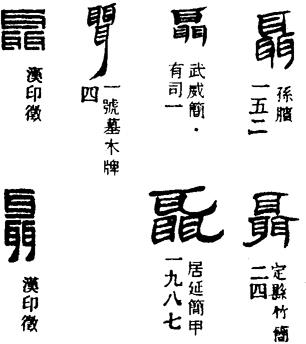 聶
孫臏
一五二
聶
武威簡·
有司一
聶
一號墓木牌
四
聶
漢印徵
聶
定縣竹簡
二四
聶
居延簡甲
一九八七
聶
漢印徵